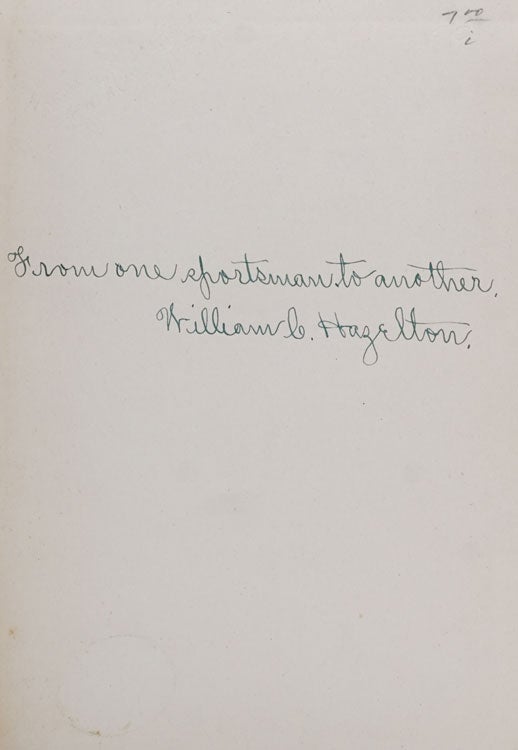 7 00
i
From one sportsman to another.
William C. Hazelton.